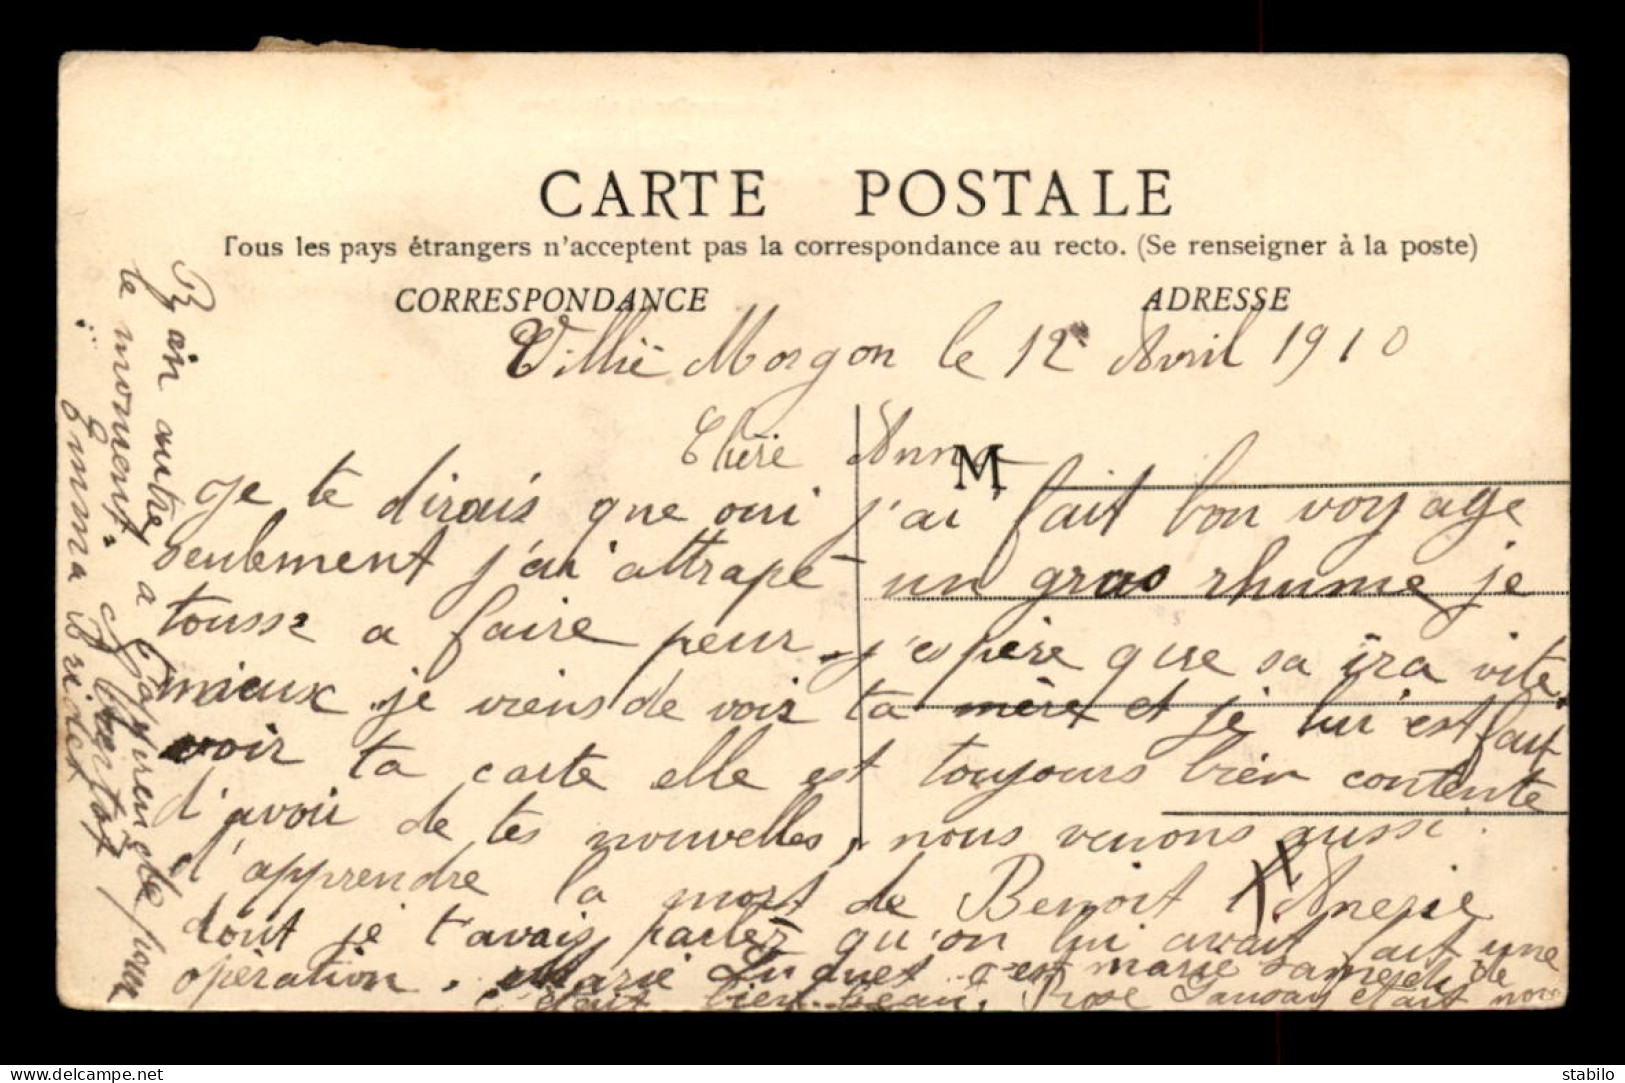 CARTE POSTALE
Tous les pays étrangers n'acceptent pas la correspondance au recto. (Se renseigner à la poste)
CORRESPONDANCE ADRESSE
Villié Morgon le 12 Avril 1910
Chère Anna
M
Je te dirais que oui j'ai fait bon voyage
seulement j'ai attrapé un gros rhume je
tousse a faire peur j'espère que sa ira vite
mieux. je viens de voir ta mère et je lui est fait
voir ta carte elle est toujours bien contente
d'avoir de tes nouvelles, nous venons aussi
d'apprendre la mort de Benoit
dont je t'avais parler qu'on lui avait fait une
opération. Marie Luquet c'est marie samedi de
était bien beau. Rose était
Rien autre a t'apprendre pour
le moment.
Emma Bridet
www.delcampe.net
stabilo